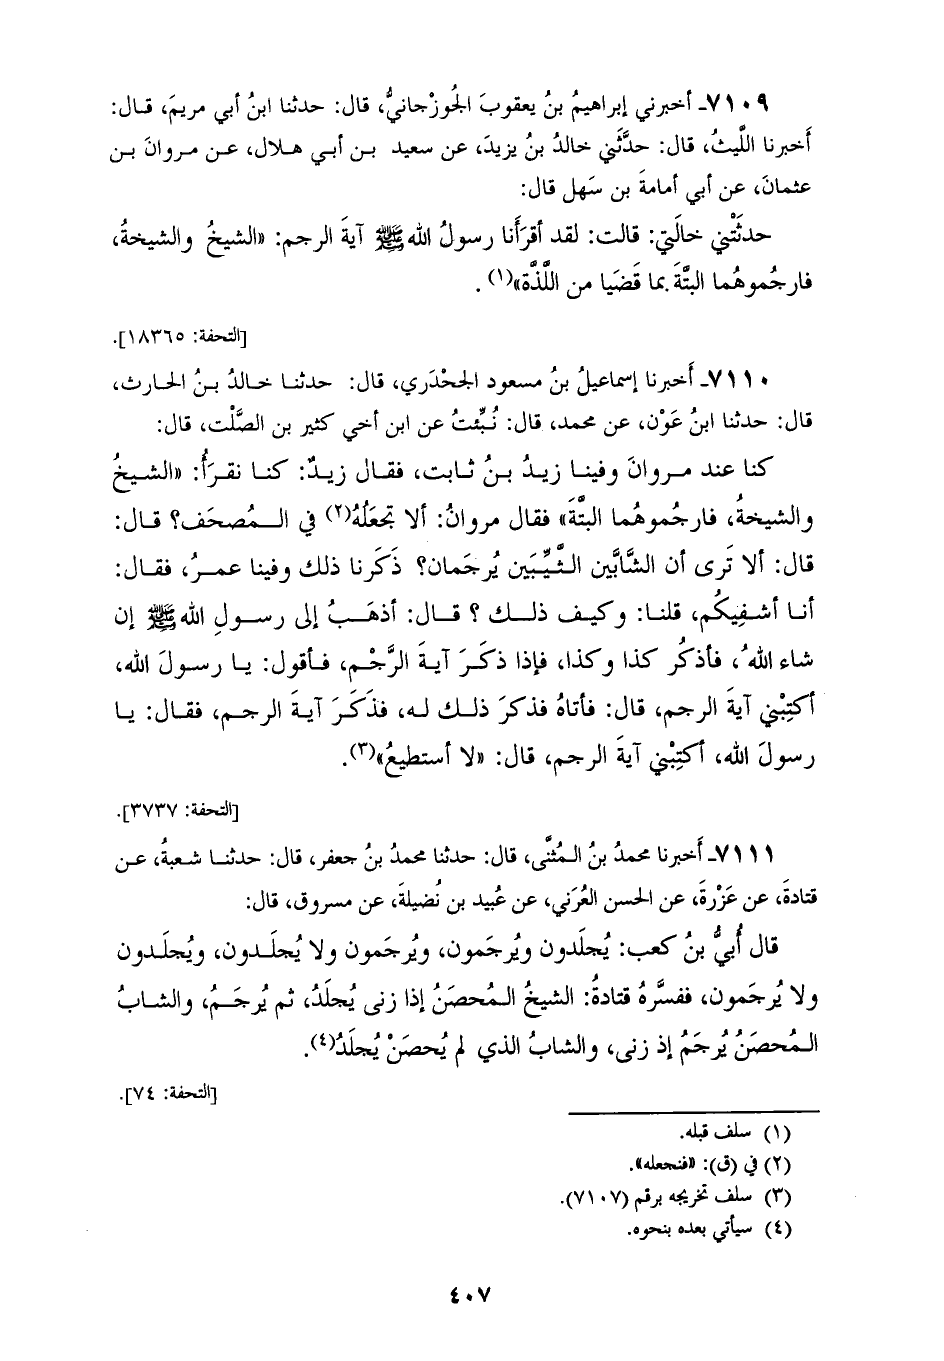 ٧١٠٩ـ أخبرني إبراهيمُ بنُ يعقوبَ الجُوزْجانيُّ، قال: حدثنا ابنُ أبي مريمَ، قـال:
أَخبرنا اللَّيثُ، قال: حدَّثَني خالدُ بنُ يزيدَ، عن سعيد بـن أبـي هـلال، عـن مـروانَ بـن
عثمانَ، عن أبي أمامةَ بن سَهل قال:
حدثَتْني خالَتي: قالت: لقد أقرَأَنا رسولُ اللهﷺ آيةَ الرجم: «الشيخُ والشيخةُ،
فارجُموهُما البتَّةَ بما قَضَيا من اللَّذَّة»(١) .
[التحفة: ١٨٣٦٥].
٧١١٠ـ أَخبرنا إسماعيلُ بنُ مسعود الجَحْدَري، قال: حدثنـا خـالدُ بـنُ الحـارث،
قال: حدثنا ابنُ عَوْن، عن محمد، قال: نُبِّئتُ عن ابن أخي كثير بن الصَّلْت، قال:
كنا عند مـروانَ وفينـا زيدُ بـنُ ثـابت، فقـال زيـدٌ: كنـا نقـرَأُ: «الشـيخُ
والشيخةُ، فارجُموهُما البتَّةَ» فقال مروانُ: ألا تجعَلُهُ(٢) في الـمُصحَف؟ قـال:
قال: ألا تَرى أن الشَّابَّين الثَّيِّبَين يُرجَمان؟ ذَكَرنا ذلك وفينا عمـرُ، فقـال:
أنـا أشـفِيكُم، قلنـا: وكيـف ذلـك ؟ قـال: أذهَـبُ إلى رسـولِ اللهﷺ إن
شاء اللهُ، فأذكُر كذا وكذا، فإذا ذكَـرَ آيـةَ الرَّجْـم، فـأقول: يـا رسـولَ الله،
أكتِبْني آيةَ الرجم، قال: فأتاهُ فذكرَ ذلـك لـه، فذَكَـرَ آيـةَ الرجـم، فقـال: يـا
رسولَ الله، أكتِبْني آيةَ الرجم، قال: «لا أستطيعُ»(٣).
[التحفة: ٣٧٣٧].
٧١١١ـ أَخبرنا محمدُ بنُ الـمُثنَّى، قال: حدثنا محمدُ بنُ جعفر، قال: حدثنـا شعبةُ، عـن
قتادةَ، عن عَزْرةَ، عن الحسن العُرَني، عن عُبيد بن نُضيلةَ، عن مسروق، قال:
قال أُبيُّ بنُ كعب: يُجلَدون ويُرجَمون، ويُرجَمون ولا يُجلَـدون، ويُجلَـدون
ولا يُرجَمون، ففسَّرهُ قتادةُ: الشيخُ الـمُحصَنُ إذا زنى يُجلَدُ، ثم يُرجَـمُ، والشـابُ
الـمُحصَنُ يُرجَمُ إذ زنى، والشابُ الذي لم يُحصَنْ يُجلَدُ(٤).
[التحفة: ٧٤].
(١) سلف قبله.
(٢) في (ق): «فنجعله».
(٣) سلف تخريجه برقم (٧١٠٧).
(٤) سيأتي بعده بنحوه.
٤٠٧